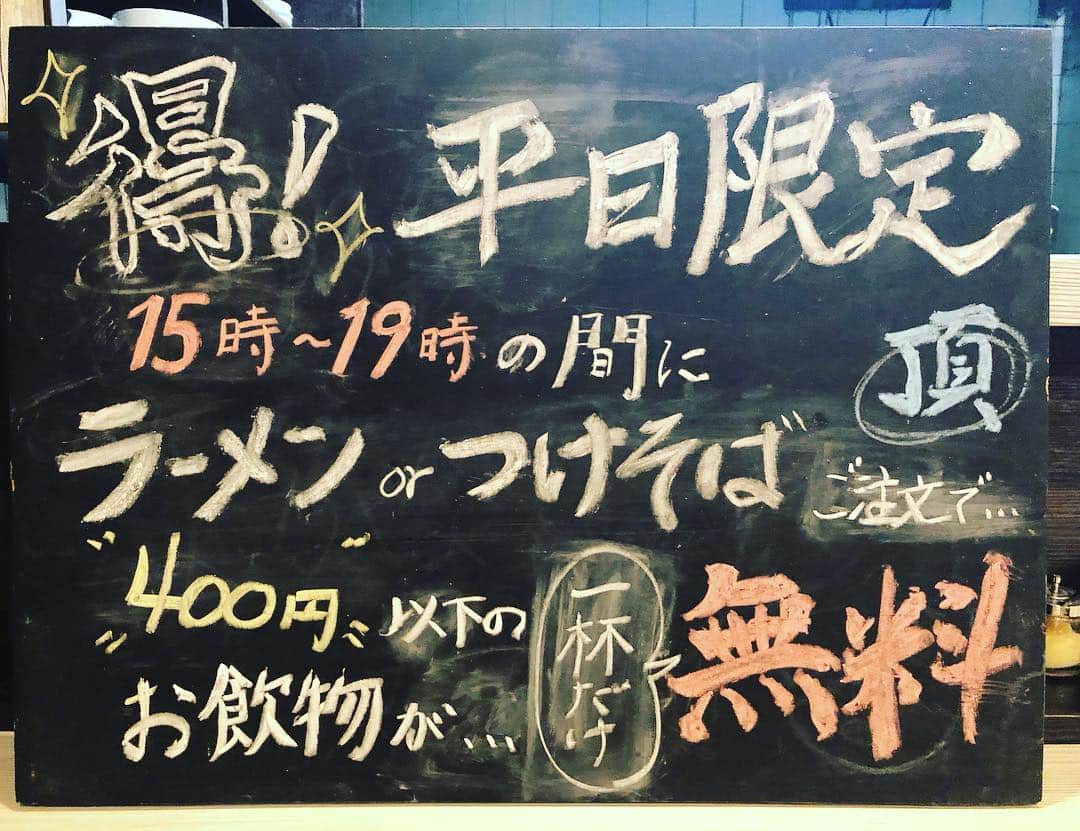 得! 平日限定
15時~19時の間に
頂
ラーメン or つけそば ご注文で...
"400円" 以下の
お飲物が...
一杯だけ
無料